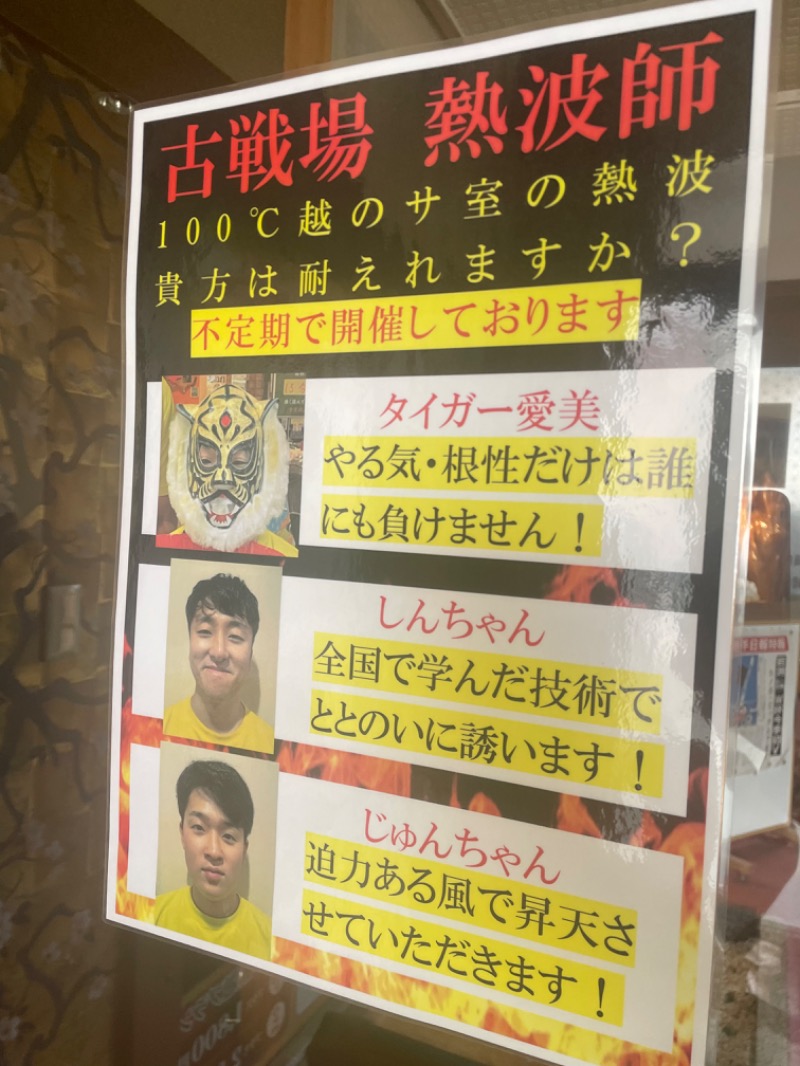 古戦場 熱波師
100℃越のサ室の熱波
貴方は耐えれますか？
不定期で開催しております
タイガー愛美
やる気・根性だけは誰
にも負けません！
しんちゃん
全国で学んだ技術で
ととのいに誘います！
じゅんちゃん
迫力ある風で昇天さ
せていただきます！